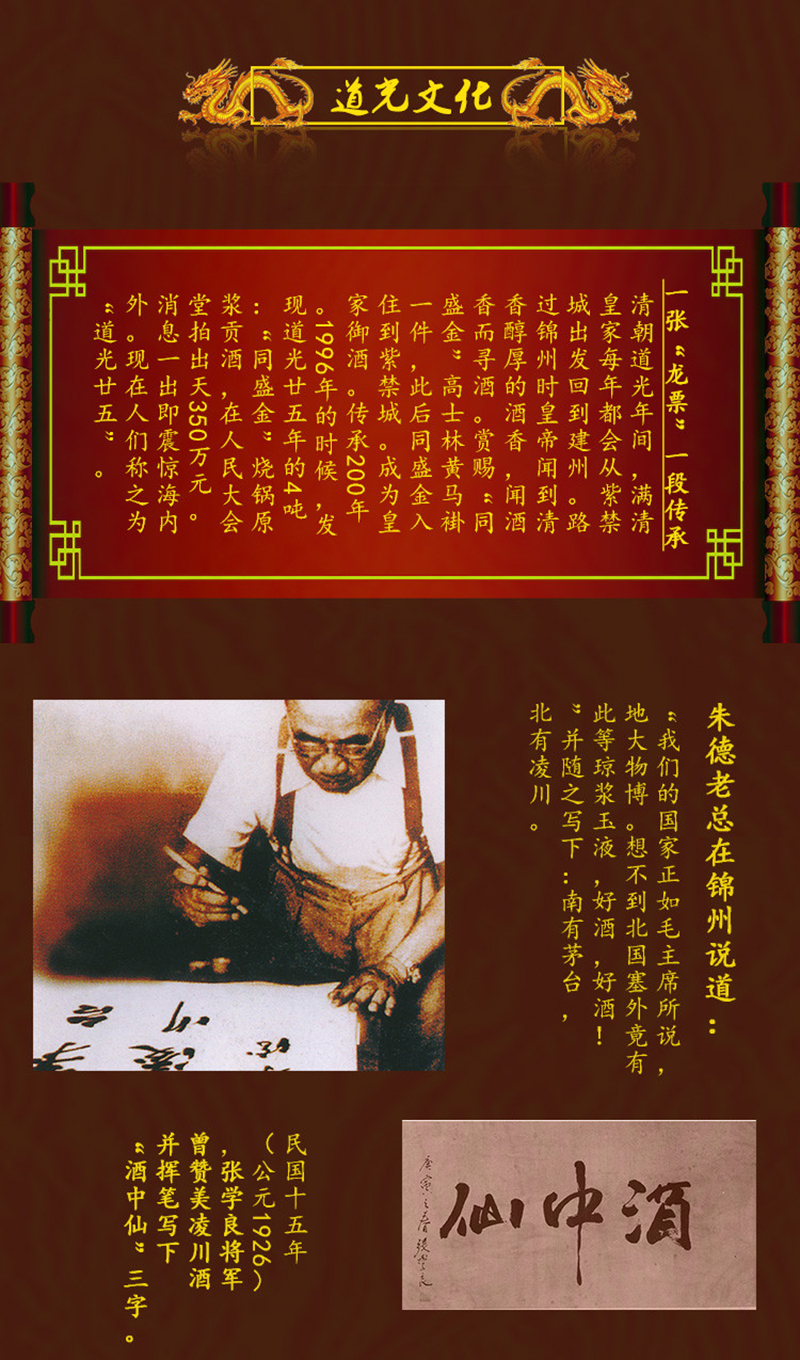 道光文化
一张“龙票”一段传承
清朝道光年间，满清
皇家每年都会从紫禁
城出发回到建州。路
过锦州时皇帝闻到清
香醇厚的酒香，闻酒
香而寻酒。赏赐“同
盛金”高士林黄马褂
一件，此后同盛金入
住到紫禁城。成为皇
家御酒。传承200年
。1996年的时候，发
现道光廿五年的4吨
：“同盛金”烧锅原
浆贡酒，在人民大会
堂拍出天350万元。
消息一出即震惊海内
外。现在人们称之为
“道光廿五”。
朱德老总在锦州说道：
“我们的国家正如毛主席所说，
地大物博。想不到北国塞外竟有
此等琼浆玉液，好酒，好酒！
”并随之写下：南有茅台，
北有凌川。
民国十五年
（公元1926）
，张学良将军
曾赞美凌川酒
并挥笔写下
“酒中仙”三字。
酒中仙